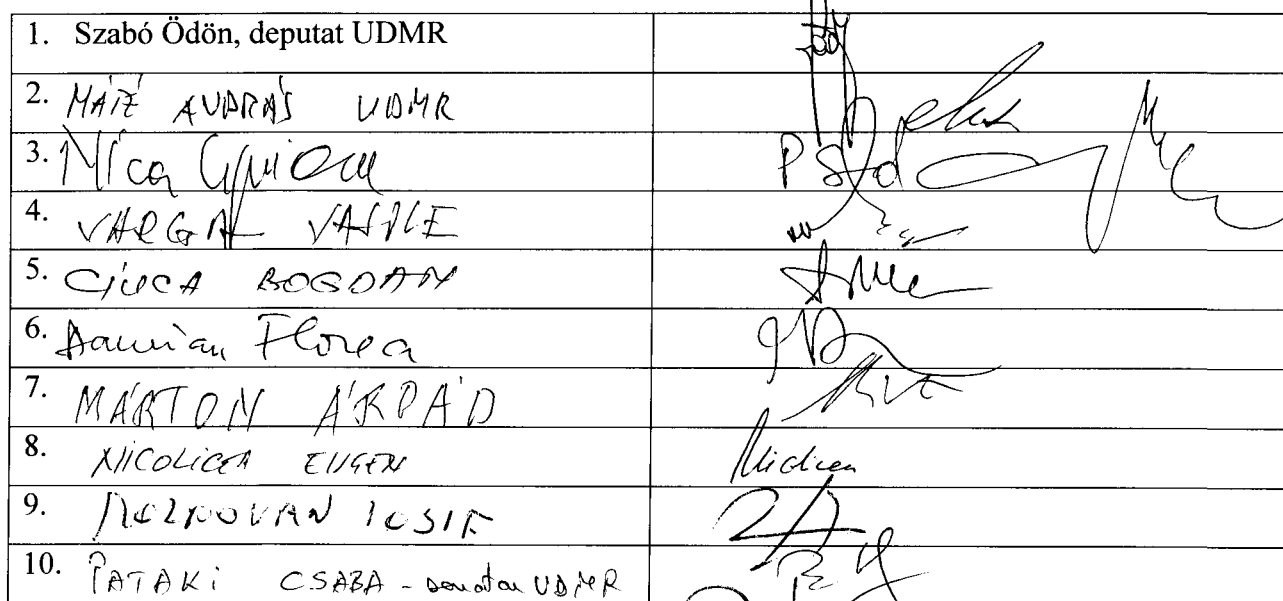 1. Szabó Ödön, deputat UDMR
2. MÁTÉ ANDRÁS UDMR
3. Nica
4. VARGA VASILE
5. CIUCA BOGDAN
6. Damian Florea
7. MÁRTON ÁRPÁD
8. NICOLICEA EUGEN
9. IOSIF
10. PATAKI CSABA - senator UDMR